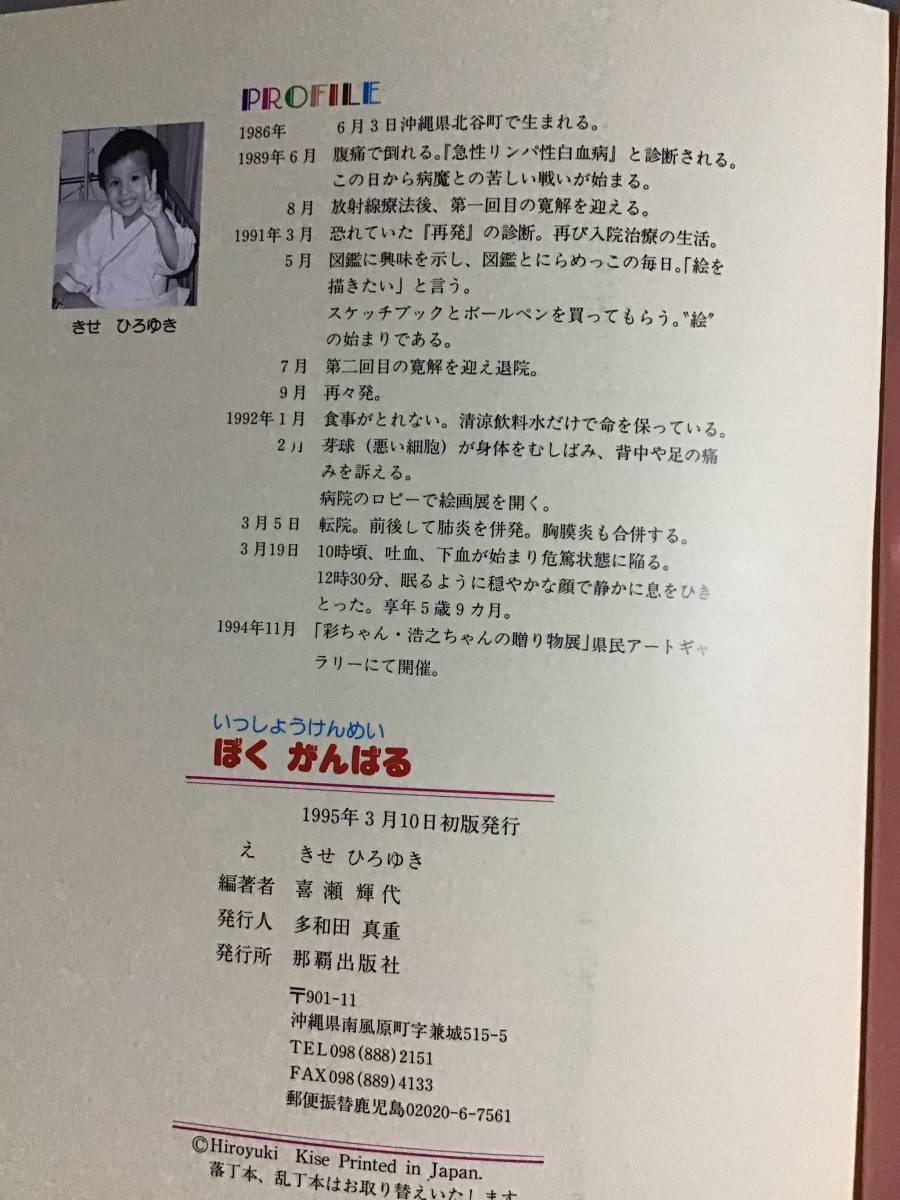 PROFILE
1986年　6月3日沖縄県北谷町で生まれる。
1989年6月　腹痛で倒れる。『急性リンパ性白血病』と診断される。
この日から病魔との苦しい戦いが始まる。
8月　放射線療法後、第一回目の寛解を迎える。
1991年3月　恐れていた『再発』の診断。再び入院治療の生活。
5月　図鑑に興味を示し、図鑑とにらめっこの毎日。「絵を
描きたい」と言う。
スケッチブックとボールペンを買ってもらう。〝絵〟
の始まりである。
7月　第二回目の寛解を迎え退院。
9月　再々発。
1992年1月　食事がとれない。清涼飲料水だけで命を保っている。
2月　芽球（悪い細胞）が身体をむしばみ、背中や足の痛
みを訴える。
病院のロビーで絵画展を開く。
3月5日　転院。前後して肺炎を併発。胸膜炎も合併する。
3月19日　10時頃、吐血、下血が始まり危篤状態に陥る。
12時30分、眠るように穏やかな顔で静かに息をひき
とった。享年5歳9カ月。
1994年11月　「彩ちゃん・浩之ちゃんの贈り物展」県民アートギャ
ラリーにて開催。
きせ　ひろゆき
いっしょうけんめい
ぼく がんばる
1995年3月10日初版発行
え　きせ ひろゆき
編著者　喜瀬輝代
発行人　多和田真重
発行所　那覇出版社
〒901-11
沖縄県南風原町字兼城515-5
TEL098(888)2151
FAX098(889)4133
郵便振替鹿児島02020-6-7561
©Hiroyuki Kise Printed in Japan.
落丁本、乱丁本はお取り替えいたします